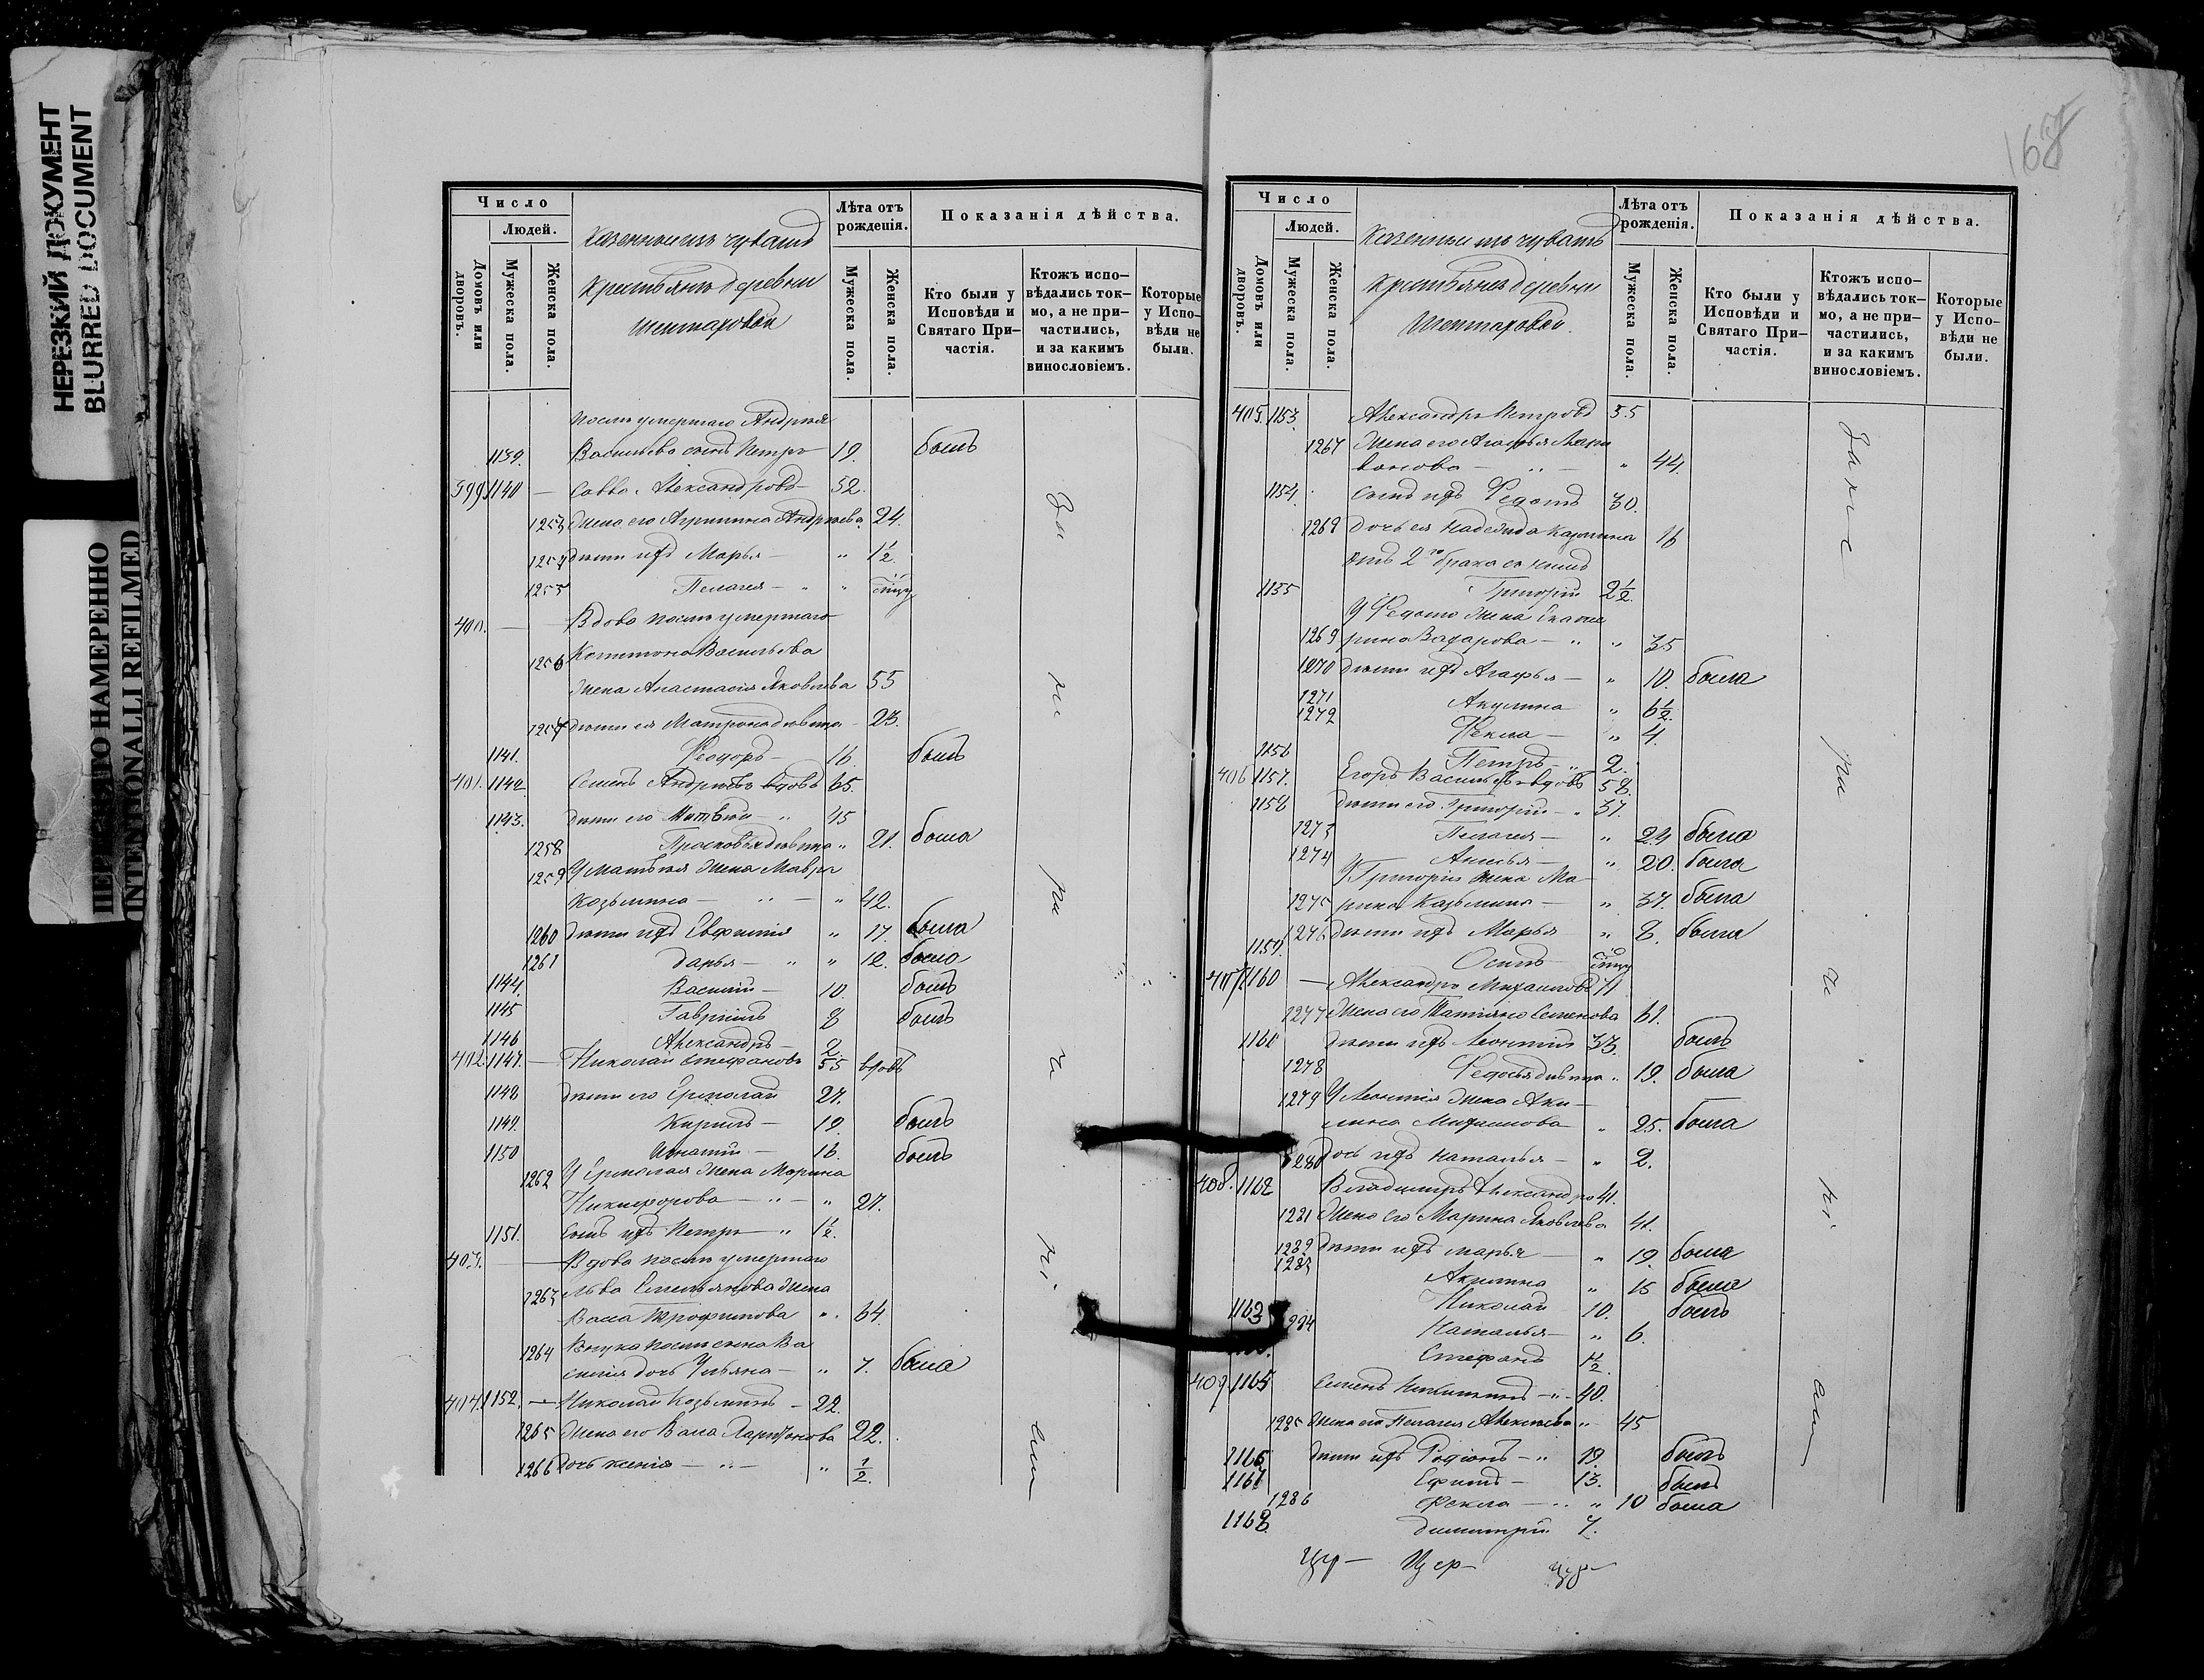 НЕРЕЗКИЙ ДОКУМЕНТ
BLURRED DOCUMENT
ПЕРЕСНЯТО НАМЕРЕННО
INTENTIONALLI REFILMED
Число
Людей.
Домовъ или дворовъ.
Мужеска пола.
Женска пола.
Казенныи изъ чувашъ
крестьянъ деревни
Шептаровой
Лѣта отъ рожденія.
Мужеска пола.
Женска пола.
Показанія дѣйства.
Кто были у Исповѣди и Святаго Причастія.
Ктожъ исповѣдались токмо, а не причастились, и за какимъ винословіемъ.
Которые у Исповѣди не были.
после умершаго Андрея
1139. Васильева сынъ Петръ 19. былъ
399 1140 — Савва Александровъ 52.
1253 Жена его Агрипина Андреева 24.
1254 дети ихъ Марья — " 1½.
1255 Пелагея — " "
400. — Вдова после умершаго
1256 Капитона Васильева
жена Анастасія Яковлева 55
1257 дети ея Матрона девица 23.
1141. Феодоръ — 16. былъ
401. 1142. Семенъ Андреевъ вдовъ 65.
1143. дети его Матвеи — " 45
1258 Прасковья девица " 21. была
1259 У Матвея жена Мавра
Козьмина — " — " 42.
1260 дети ихъ Евфимия " 17. была
1261 Дарья — " " 12. была
1144. Василий — 10. былъ
1145 Гавриилъ 8 былъ
1146 Александръ — 2
402. 1147. — Николай Стефановъ 55 вдовъ
1148 дети его Ермолай 27.
1149. Кирилъ — 19. былъ
1150 Игнатий — 16. былъ
1262 У Ермолая жена Марина
Никифорова — " — " 27.
1151. сынъ ихъ Петръ — " 1½.
403. — Вдова после умершаго
1263 Льва Емельянова жена
Васса Трофимова " 64.
1264 Внука после сына Ва
силия дочь Ульяна — " 7. была
404. 1152. — Николай Козьминъ — 22.
1265 жена его Васса Харитонова 22.
1266 дочь Ксения — " — " ½.
168
Число
Людей.
Домовъ или дворовъ.
Мужеска пола.
Женска пола.
Казенныи изъ чувашъ
крестьянъ деревни
Шептаровой.
Лѣта отъ рожденія.
Мужеска пола.
Женска пола.
Показанія дѣйства.
Кто были у Исповѣди и Святаго Причастія.
Ктожъ исповѣдались токмо, а не причастились, и за какимъ винословіемъ.
Которые у Исповѣди не были.
405. 1153. Александръ Петровъ 55
1267 Жена его Агафья
— " — " 44.
1154. сынъ ихъ Федотъ 30.
1268 дочь ея Надежда Казмина 16
отъ 2го брака съ нимъ
1155 Григорій 2½.
У Федота жена Екате
1269 рина Захарова — " " 35
1270 дети ихъ Агафья — " 10. была
1271 Акулина " 6½.
1272 Фекла — " 4.
1156 Петръ — " 2.
406 1157. Егоръ Васильевъ вдовъ 58.
1158 дети его Григорій — " 37.
1273 Пелагея — " 24 была
1274 Анисья — " 20. была
У Григорія жена Ма
1275 рина Казьмина — " 37. была
1276 дети ихъ Марья " 8. была
1159. Осипъ
407 1160 — Александръ Михайловъ 71
1277 Жена его Татьяна Семенова 61.
1161 дети ихъ Леонтий 33. былъ
1278 Федосья девица " 19. была
1279 У Леонтія жена Аку
лина Михайлова — " 25. была
1280 дочь ихъ Наталья — " 2.
408. 1162 Владимиръ Александро 41.
1281 Жена его Марина Яковлева 41.
1282 дети ихъ Марья — " 19. была
1283 Акилина " 15 была
1163 Николай 10. былъ
1284 Наталья — " 6.
Стефанъ
409. 1165 Семенъ Никитинъ — " 40.
1285 Жена его Пелагея Алексеева " 45
1166 дети ихъ Родіонъ — " 19. былъ
1167 Ефимъ — 13. былъ
1286 Фекла — " " 10 была
1168 Димитрий 7.